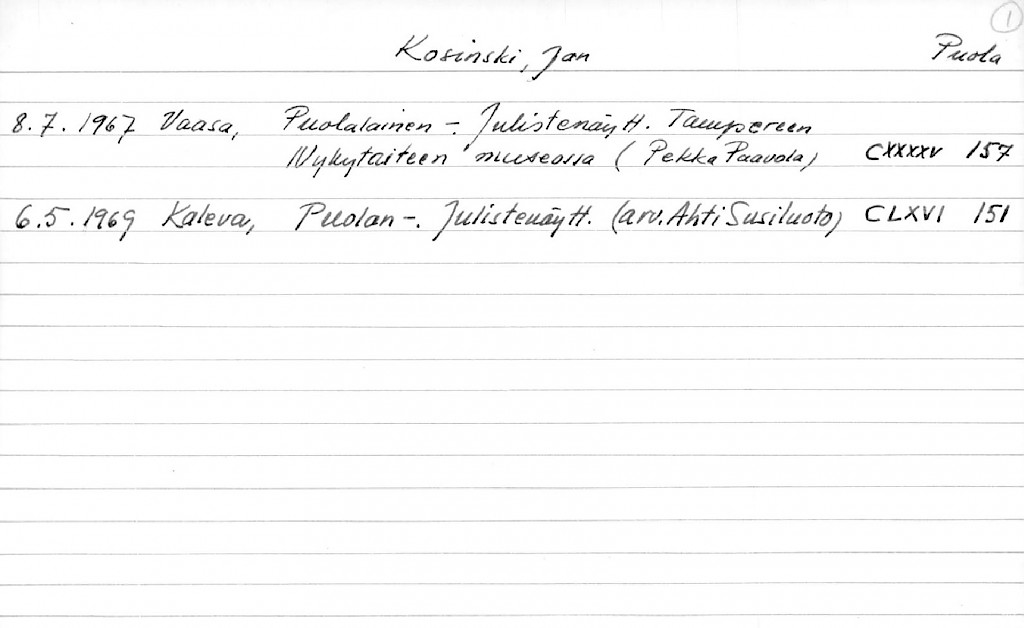 1
Kosinski, Jan Puola
8.7.1967 Vaasa, Puolalainen -. Julistenäytt. Tampereen
Nykytaiteen museossa (Pekka Paavola) CXXXXV 157
6.5.1969 Kaleva, Puolan -. Julistenäytt. (arv. Ahti Susiluoto) CLXVI 151